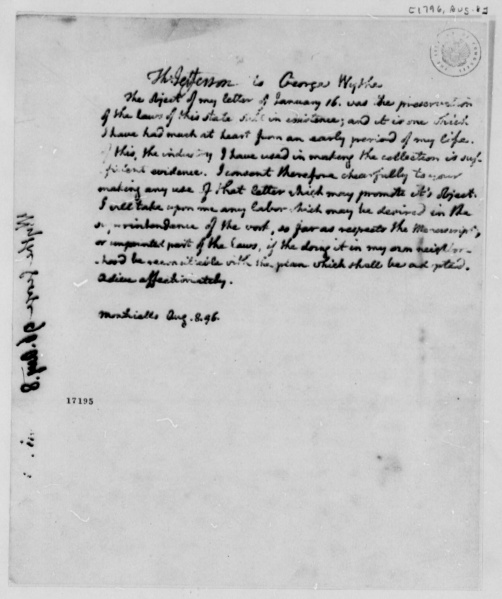 [1796, Aug. 8]
Th: Jefferson to George Wythe
The object of my letter of January 16. was the preservation
of the laws of this state still in existence; and it is one which
I have had much at heart from an early period of my life.
of this, the industry I have used in making the collection is suf-
ficient evidence. I consent therefore chearfully to your
making any use of that letter which may promote it's object.
I will take upon me any labor which may be desired in the
superintendance of the work, so far as respects the Manuscript,
or unprinted part of the laws, if the doing it in my own neighbor-
-hood be reconcileable with the plan which shall be adopted.
Adieu affectionately.
Monticello Aug. 8. 96.
17195
Wythe George 96. Aug. 8